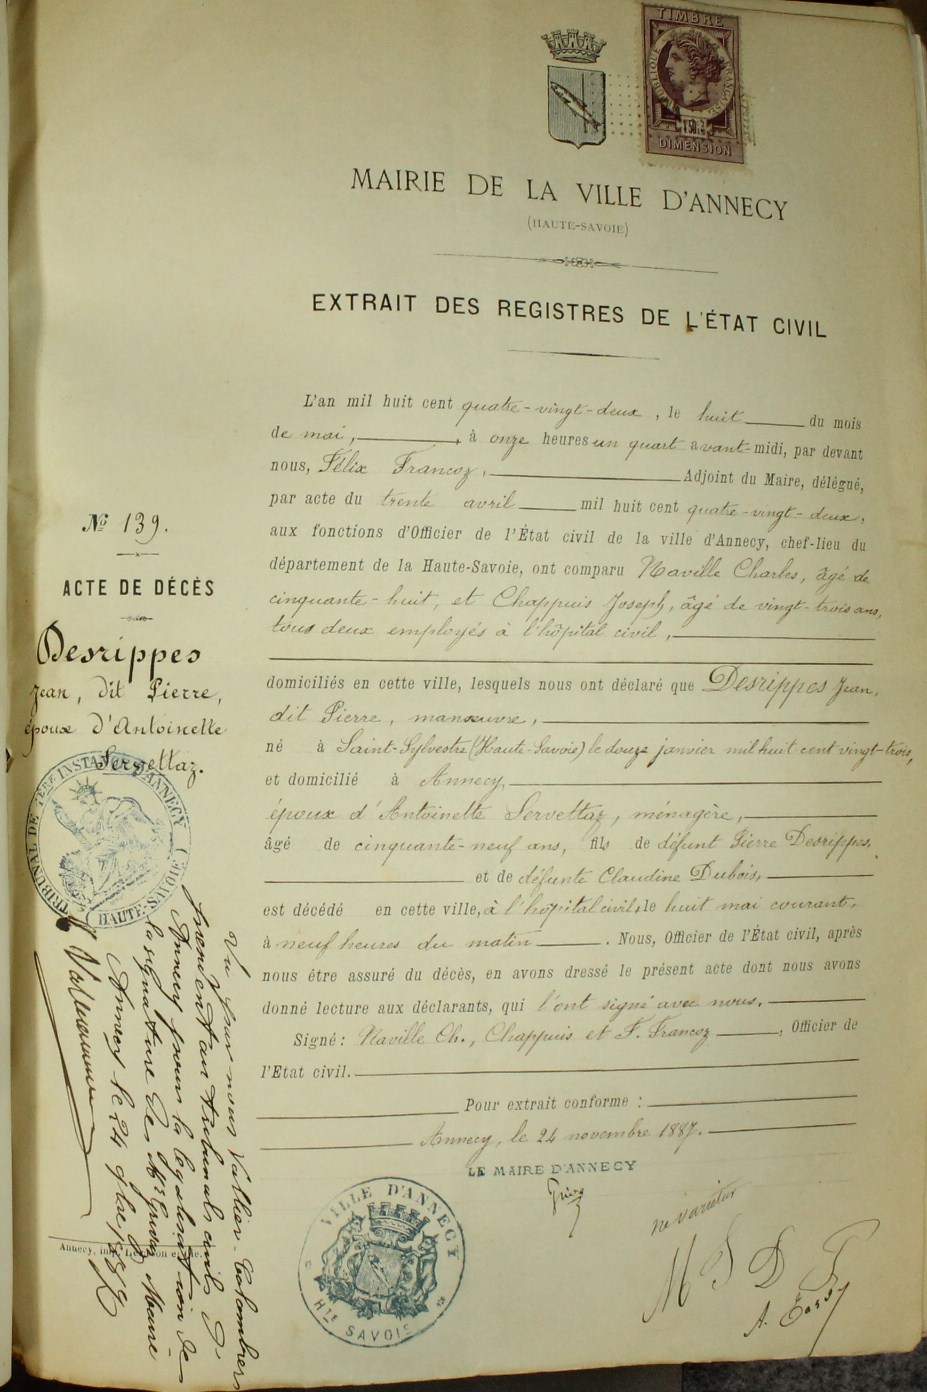 TIMBRE
RÉPUBLIQUE FRANÇAISE
DIMENSION
MAIRIE DE LA VILLE D'ANNECY
(HAUTE-SAVOIE)
EXTRAIT DES REGISTRES DE L'ÉTAT CIVIL
L'an mil huit cent quatre-vingt-deux, le huit du mois
de mai, à onze heures un quart avant-midi, par devant
nous, Félix Francoz, Adjoint du Maire, délégué,
par acte du trente avril mil huit cent quatre-vingt-deux,
aux fonctions d'Officier de l'État civil de la ville d'Annecy, chef-lieu du
département de la Haute-Savoie, ont comparu Naville Charles, âgé de
cinquante-huit, et Chappuis Joseph, âgé de vingt-trois ans,
tous deux employés à l'hôpital civil,
domiciliés en cette ville, lesquels nous ont déclaré que Desrippes Jean,
dit Pierre, manœuvre,
né à Saint-Sylvestre (Haute-Savoie) le douze janvier mil huit cent vingt-trois,
et domicilié à Annecy,
époux d'Antoinette Servettaz, ménagère,
âgé de cinquante-neuf ans, fils de défunt Pierre Desrippes,
et de défunte Claudine Dubois,
est décédé en cette ville, à l'hôpital civil, le huit mai courant,
à neuf heures du matin. Nous, Officier de l'État civil, après
nous être assuré du décès, en avons dressé le présent acte dont nous avons
donné lecture aux déclarants, qui l'ont signé avec nous.
Signé: Naville Ch., Chappuis et F. Francoz, Officier de
l'Etat civil.
Pour extrait conforme :
Annecy, le 24 novembre 1887.
LE MAIRE D'ANNECY
ne varietur
M S D F
A.
VILLE D'ANNECY
Hte SAVOIE
No 139.
ACTE DE DÉCÈS
Desrippes
Jean, dit Pierre,
époux d'Antoinette
Servettaz.
TRIBUNAL DE 1ERE INSTANCE D'ANNECY
HAUTE-SAVOIE
Vu par nous Vallier-Colombier
président au tribunal civil d'
Annecy pour la légalisation de
la signature de Mr Maire
Annecy le 24 9bre 1887
Annecy, imp.